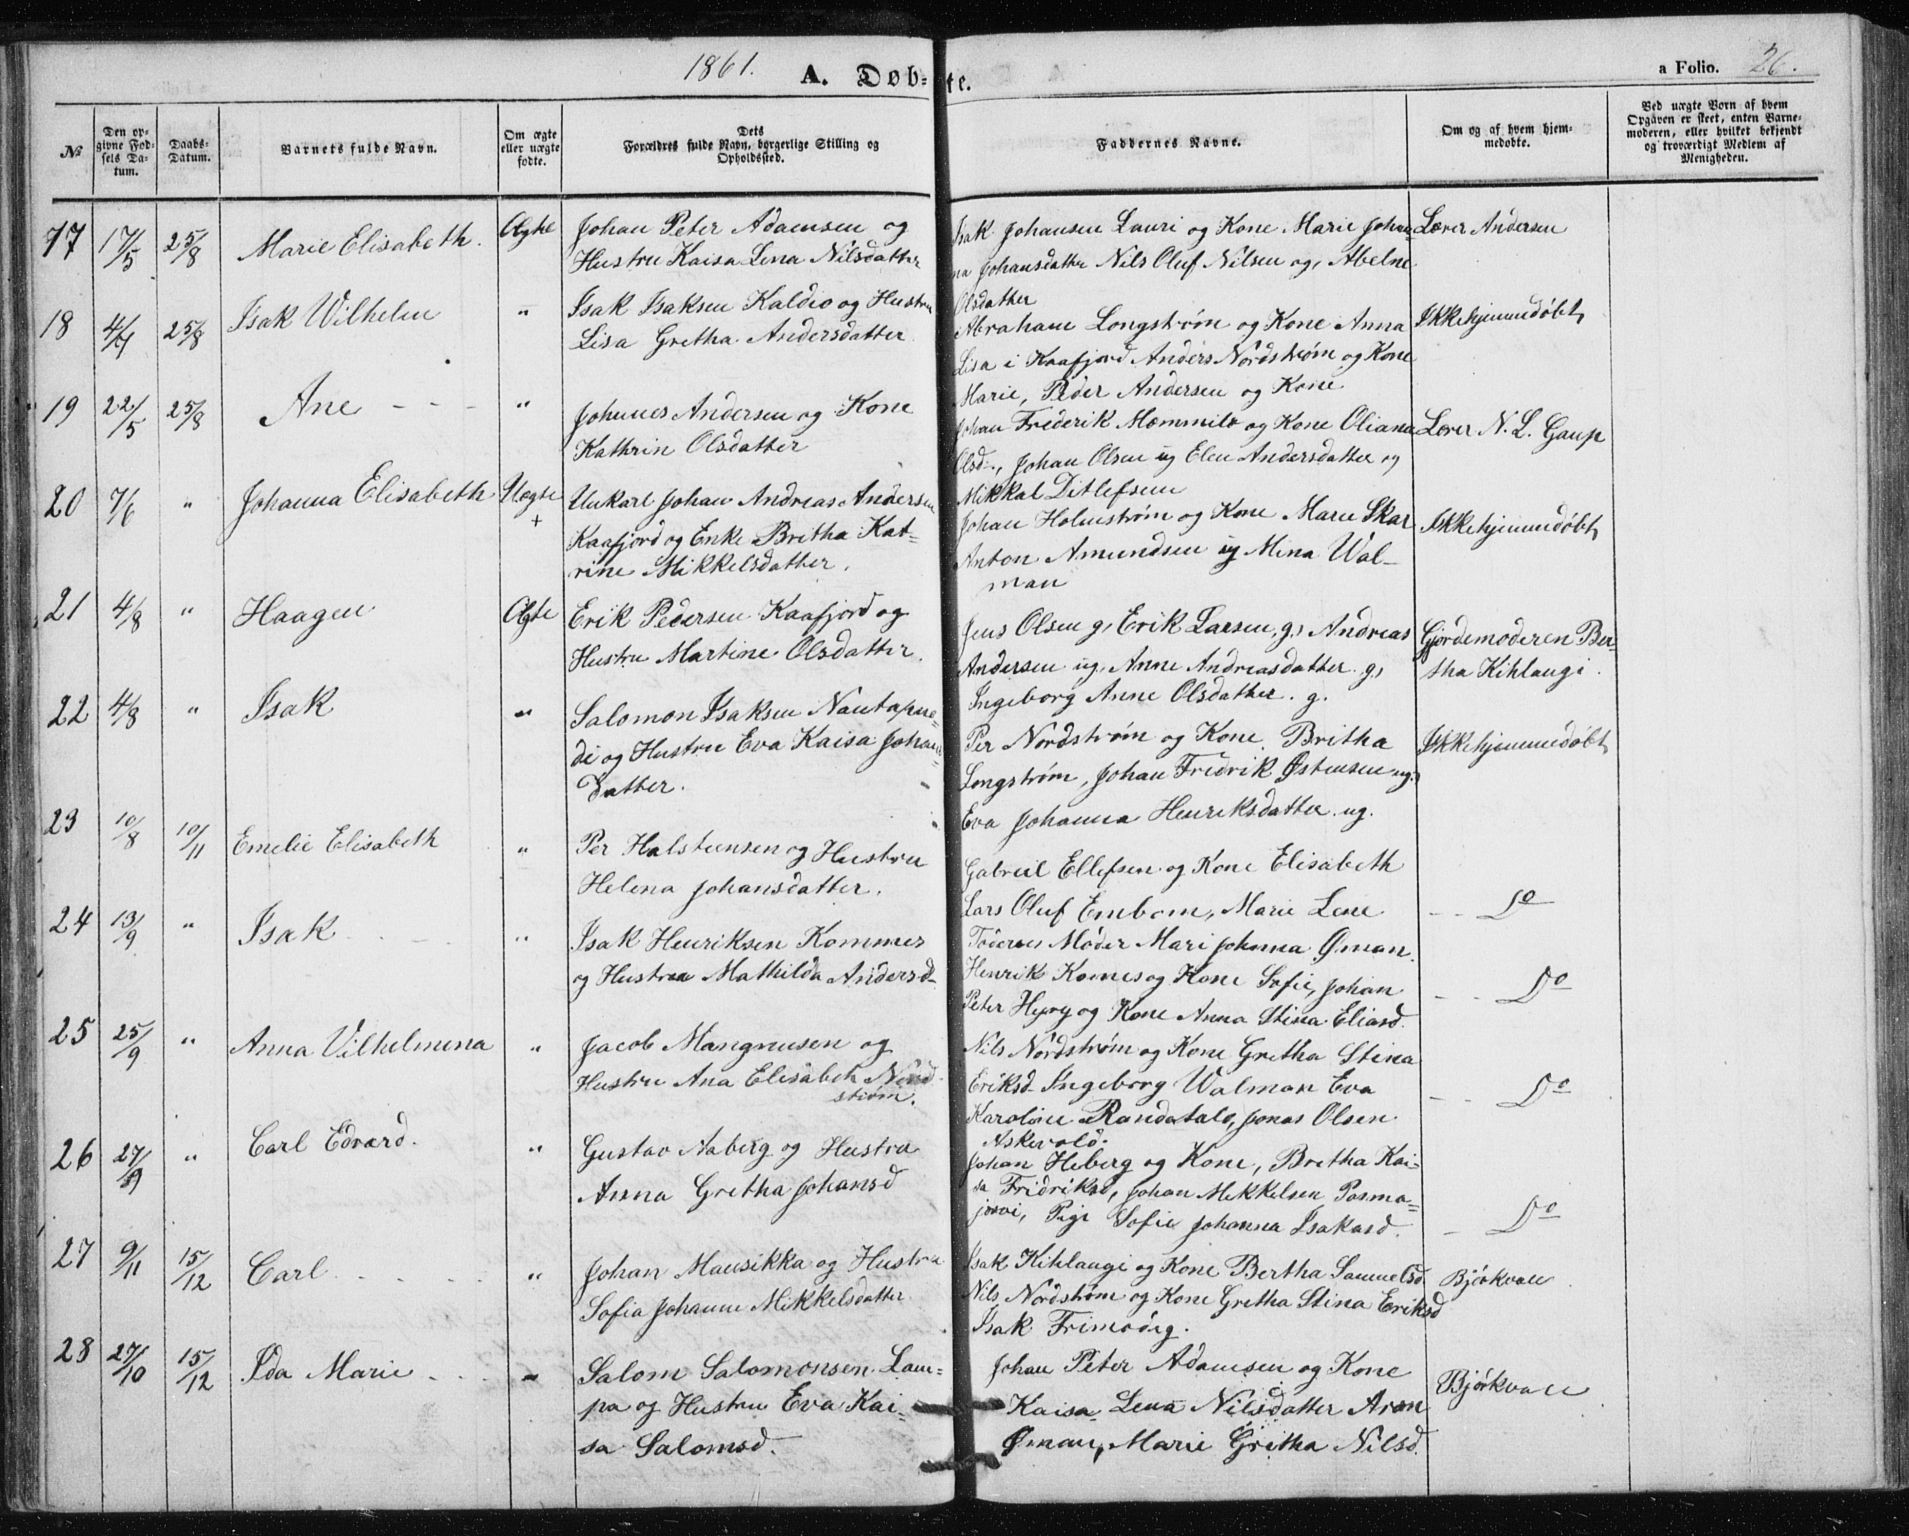 1861.
A. Døb-te.
a Folio. 26.
№
Den op-
givne Fød-
sels Da-
tum.
Daabs-
Datum.
Barnets fulde Navn.
Om ægte
eller uægte
fødte.
Dets
Forældres fulde Navn, borgerlige Stilling og
Opholdssted.
Faddernes Navne.
Om og af hvem hjem-
medøbte.
Ved uægte Born af hvem
Opgaven er skeet, enten Barne-
moderen, eller hvilket bekjendt
og troværdigt Medlem af
Menigheden.
17 17/5 25/8 Marie Elisabeth. Ægte
Johan Peter Adamsen og
Hustru Kaisa Lena Nilsdatter
Isak Johansen Lauri og Kone Marie Johan-
na Johansdatter Nils Oluf Nilsen og, Abelne
Olsdatter
Lærer Andersen
18 4/7 25/8 Isak Wilhelm "
Isak Isaksen Kaldio og Hustru
Lisa Gretha Andersdatter
Abraham Longstrøm og Kone Anna
Lisa i Kaafjord Anders Nordstrøm og Kone
Marie, Peder Andersen og Kone
Ikkehjemmedøbt
19 22/5 25/8 Ane - - - "
Johannes Andersen og Kone
Kathrin Olsdatter
Johan Frederik Mommilo og Kone Oliana
Olsd-., Johan Olsen ug Elen Andersdatter og
Mikkal Ditlefsen
Lærer N. L. Gaup
20 7/6 " Johanna Elisabeth Uægte
+
Unkarl Johan Andreas Andersen
Kaafjord og Enke Britha Kat-
rine Mikkelsdatter.
Johan Holmstrøm og Kone Marie Skar
Anton Amundsen ug Mina Wal-
man
Ikkehjemmedøbt
21 4/8 " Haagen Ægte
Erik Pedersen Kaafjord og
Hustru Martine Olsdatter.
Jens Olsen g, Erik Larsen, g, Andreas
Andersen ug, Anne Andreasdatter g,
Ingeborg Anne Olsdatter. g.
Gjordemoderen Ber-
tha Kihlangi.
22 4/8 " Isak "
Salomon Isaksen Nautapue-
di og Hustru Eva Kaisa Johans-
datter.
Per Nordstrøm og Kone Britha
Longstrøm, Johan Fredrik Østensen ug.
Eva Johanna Henriksdatter ug.
Ikkehjemmedøbt
23 10/8 10/11 Emelie Elisabeth "
Per Halstensen og Hustru
Helena Johansdatter.
Gabriel Ellefsen og Kone Elisabeth
Lars Oluf Embom, Marie Lene
- - Do
24 13/9 " Isak "
Isak Henriksen Kommes
og Hustru Mathilda Andersd-
Moder Mari Johanna Øman.
Henrik Komes og Kone Sofie, Johan
Peter Hyry og Kone Anna Stina Eliasd.
- - Do
25 25/9 " Anna Vilhelmina "
Jacob Mangnusen og
Hustru Ana Elisabeth Nord-
strøm.
Nils Nordstrøm og Kone Gretha Stina
Eriksd- Ingeborg Walman Eva
Karoline Randatalo, Jonas Olsen
Askevold.
- - Do
26 27/9 " Carl Edvard. "
Gustav Aaberg og Hustru
Anna Gretha Johansd
Johan Heberg og Kone, Bretha Kai-
sa Fridriksd, Johan Mikkelsen Posma-
jærvi, Pige Sofie Johanna Isakasd.
- Do
27 9/11 15/12 Carl "
Johan Mansikka og Hustru
Sofia Johanne Mikkelsdatter
Isak Kihlangi og Kone Bertha Samuelsd.
Nils Nordstrøm og Kone Gretha Stina Eriksd
Isak Frimodig.
Bjørkvall
28 27/10 15/12 Ida Marie "
Salom Salomonsen Lam-
pa og Hustru Eva Kai-
sa Salomsd.
Johan Peter Adamsen og Kone
Kaisa Lena Nilsdatter Aron
Øman, Marie Gretha Nilsd.
Bjørkvall